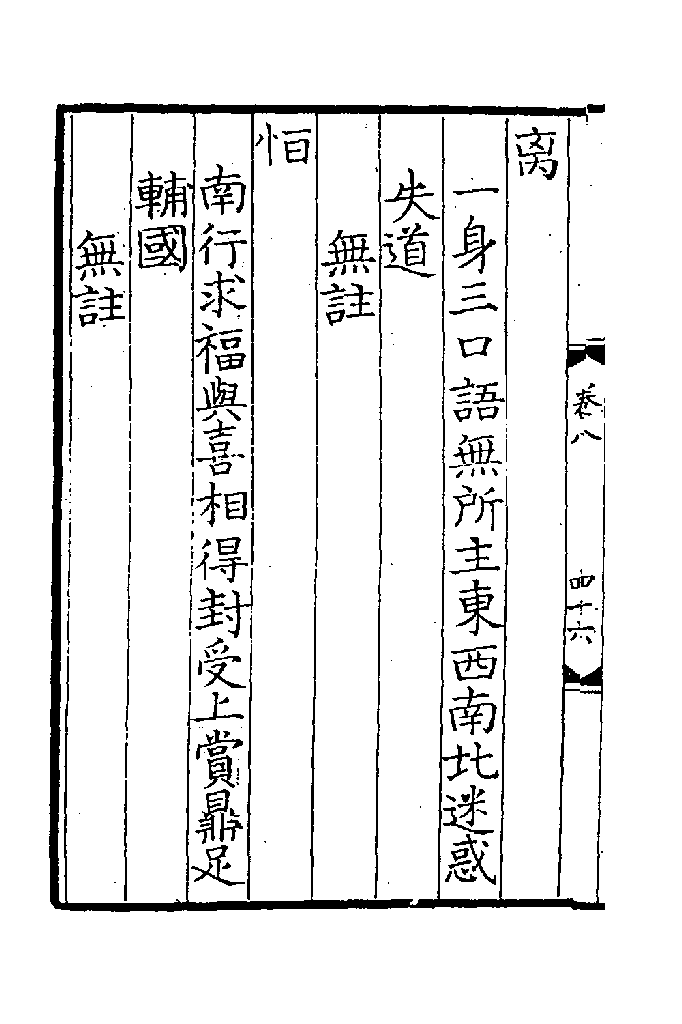 离
一身三口語無所主東西南北迷惑
失道
無註
恒
南行求福與喜相得封受上賞鼎足
輔國
無註
卷八
四十六